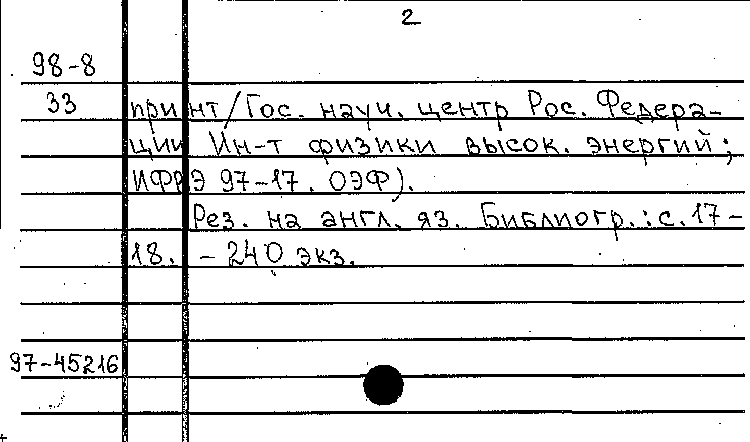 2
98-8
33 принт/Гос. науч. центр Рос. Федера-
ции Ин-т физики высок. энергий;
ИФВЭ 97-17. ОЭФ).
Рез. на англ. яз. Библиогр.: с. 17-
18. - 240 экз.
97-45216